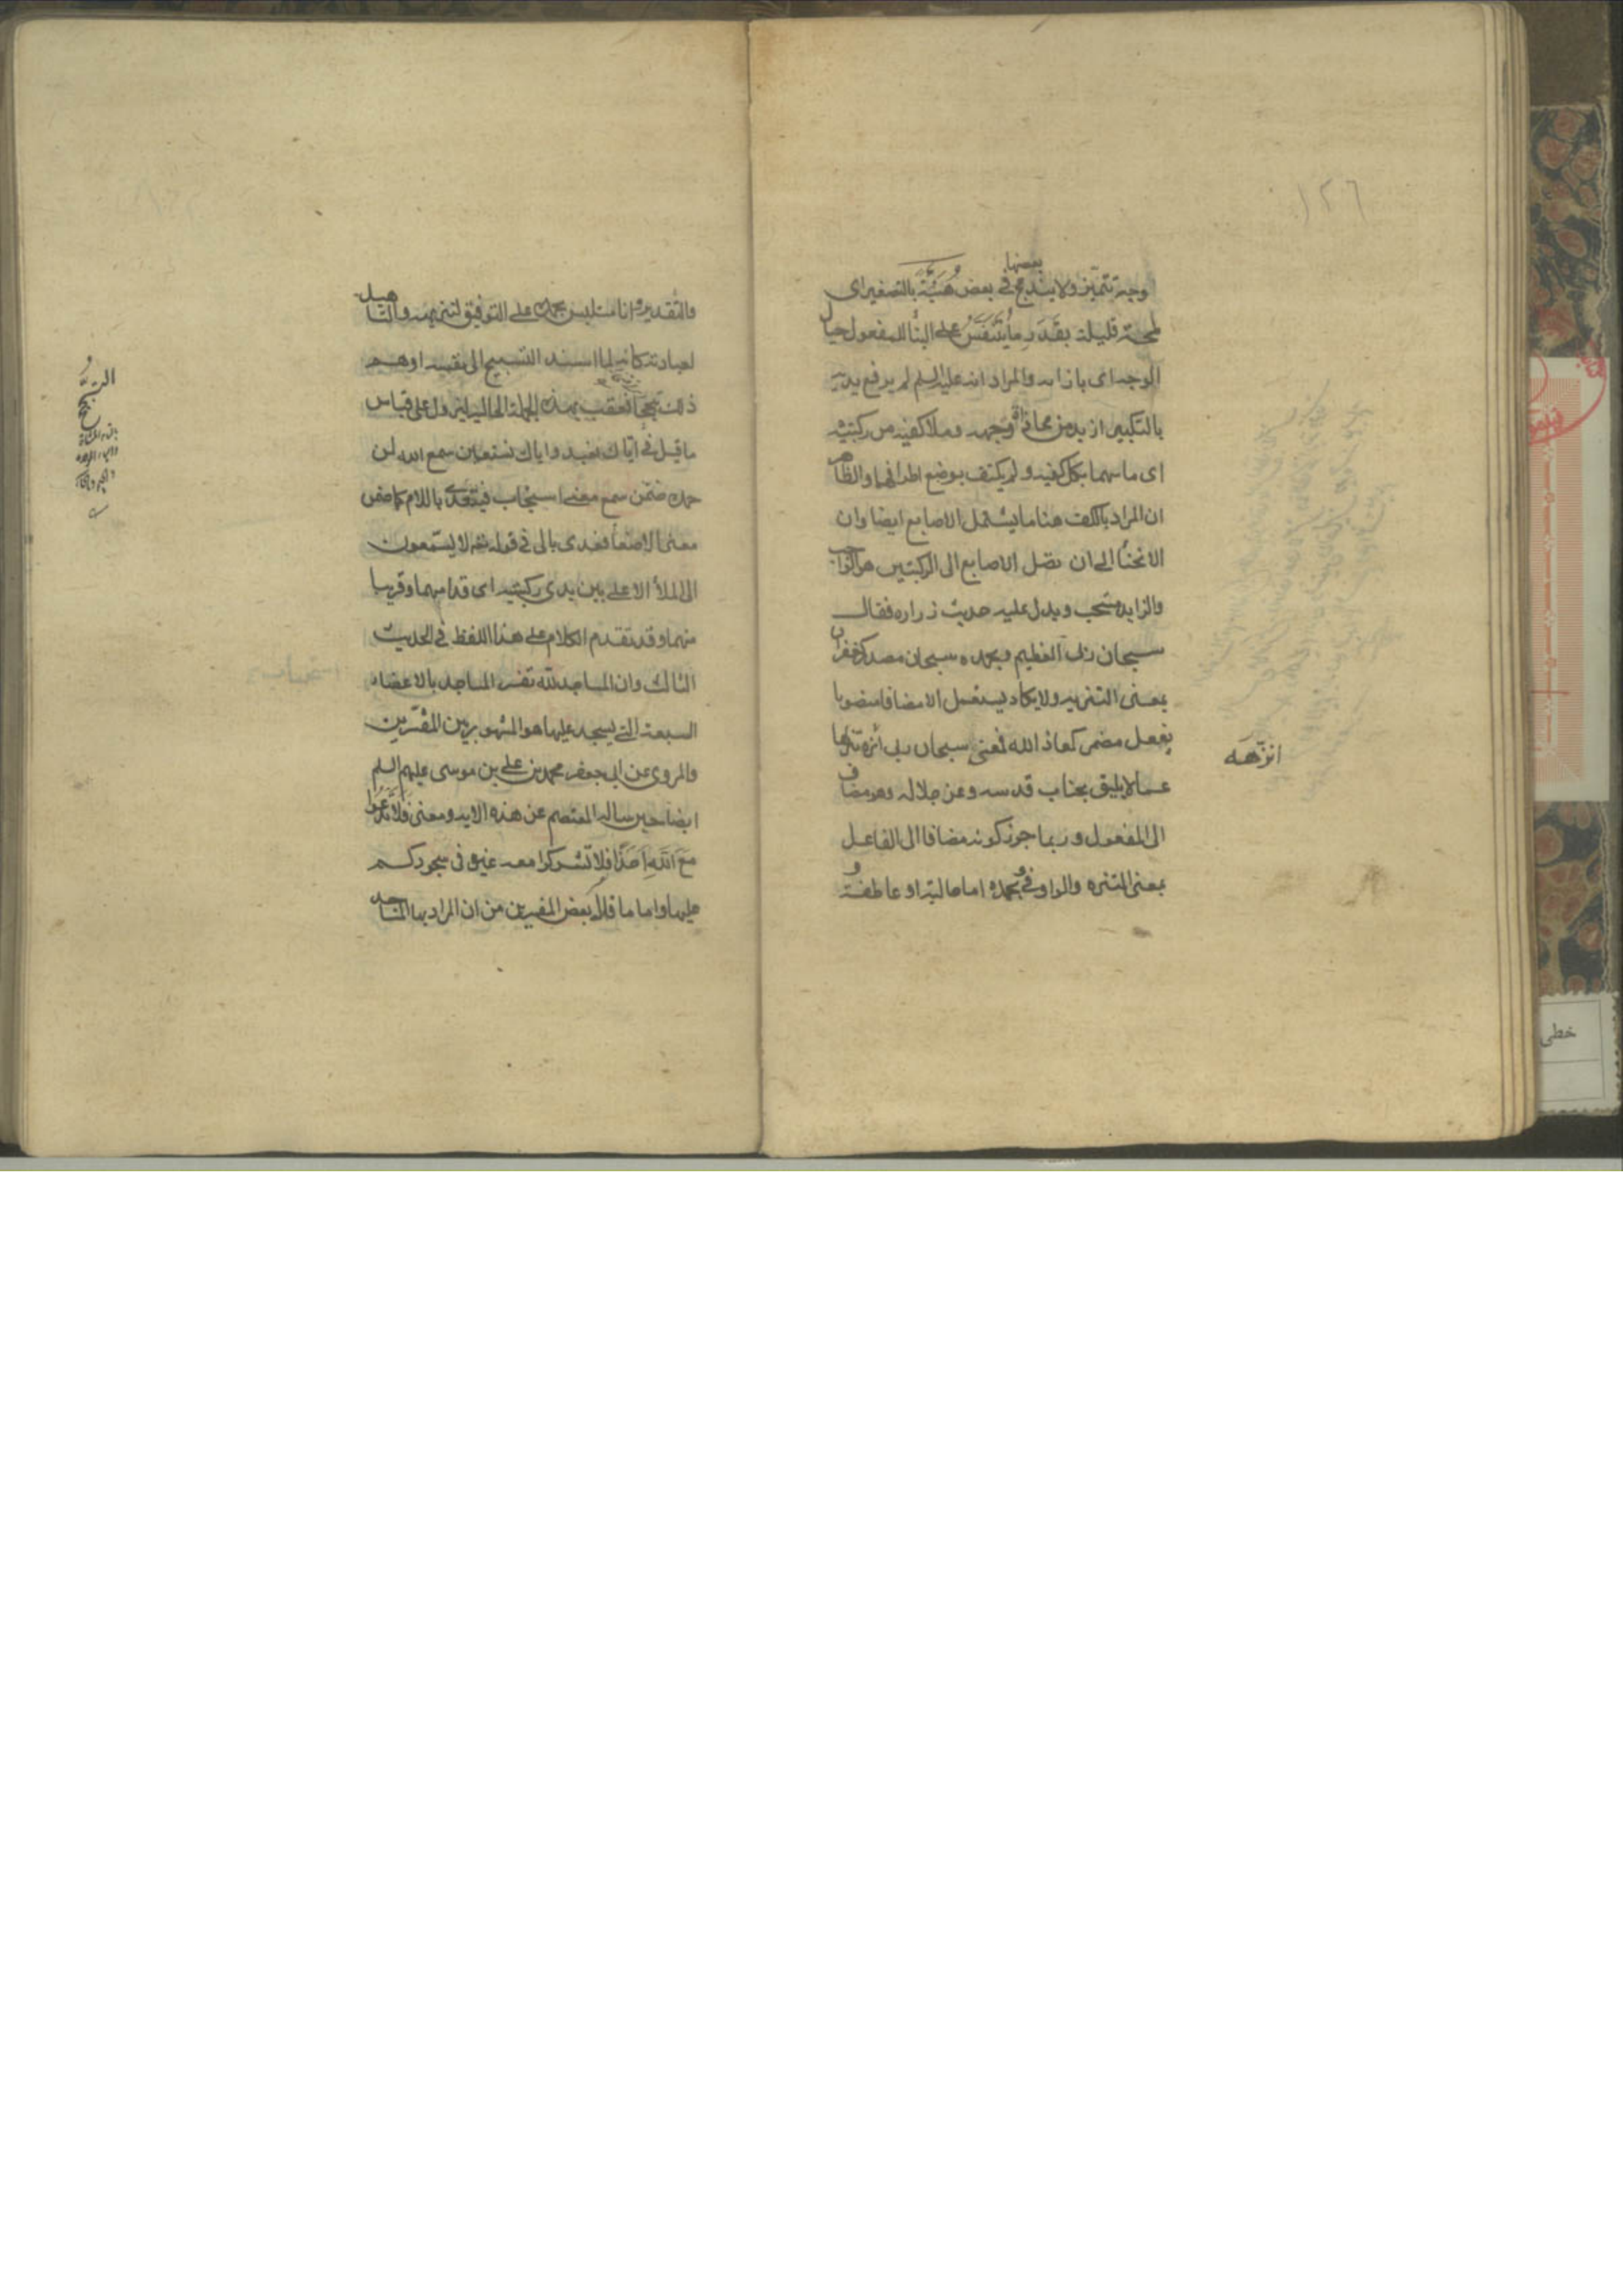 ١٢٦
بعضها
وجه تتميز ولا يندمج في بعض هُنَيَّة بالتصغير اى
لمحة قليلة بقَدَر ما يَتَنَفَّسُ على البنا للمفعول حيال
الوجه اى بازائه والمراد انه عليه السلم لم يرفع يديه
بالتكبير ازيد من محاذاة وجهه وملا كفيه من ركبتيه
اى ماسهما بكل كفيه ولم يكتف بوضع اطرافهما والظاهر
ان المراد بالكف هنا ما يشتمل الاصابع ايضا وان
الانحنا الى ان تصل الاصابع الى الركبتين هو الواجب
والزايد مستحب ويدل عليه حديث زراره فقال
سبحان ربى العظيم وبحمده سبحان مصدر كغفران
بمعنى التنزيه ولا يكاد يستعمل الا مضافا منصوبا
بفعل مضمر كمعاذ الله فمعنى سبحان ربى أنزه تنزيها
انزهه
عما لا يليق بجناب قدسه وعز جلاله وهو مضاف
الى المفعول وربما جوز كونه مضافا الى الفاعل
بمعنى التنزه والواو في وبحمده اما حالية او عاطفة
والتقدير وانا متلبس بحمده على التوفيق لتنزيهه والتاهيل
لعبادته كانه لما اسند التسبيح الى نفسه اوهم
ذلك تبجحا فعقب بهذه الجملة الحالية ليزول على قياس
ما قيل في اياك نعبد واياك نستعين سمع الله لمن
حمده ضمّن سمع معنى استجاب فيتعدى باللام كما ضمن
معنى الاصغا فعدى بالى في قوله تعه لا يسّمعون
الى الملأ الاعلى بين يدى ركبتيه اى قدامهما وقريبا
منهما وقد تقدم الكلام على هذا اللفظ في الحديث
الثالث وان المساجد لله تفسر المساجد بالاعضاء
السبعة التى يسجد عليها هو المشهور بين المفسّرين
والمروى عن ابى جعفر محمد بن على بن موسى عليهم السلم
ايضا حين ساله المعتصم عن هذه الايه ومعنى فلا تدعوا
مع الله احدا فلا تشركوا معه غيره في سجودكم
عليها واما ما قاله بعض المفسرين من ان المراد بها المساجد
التبجُّح
خطى